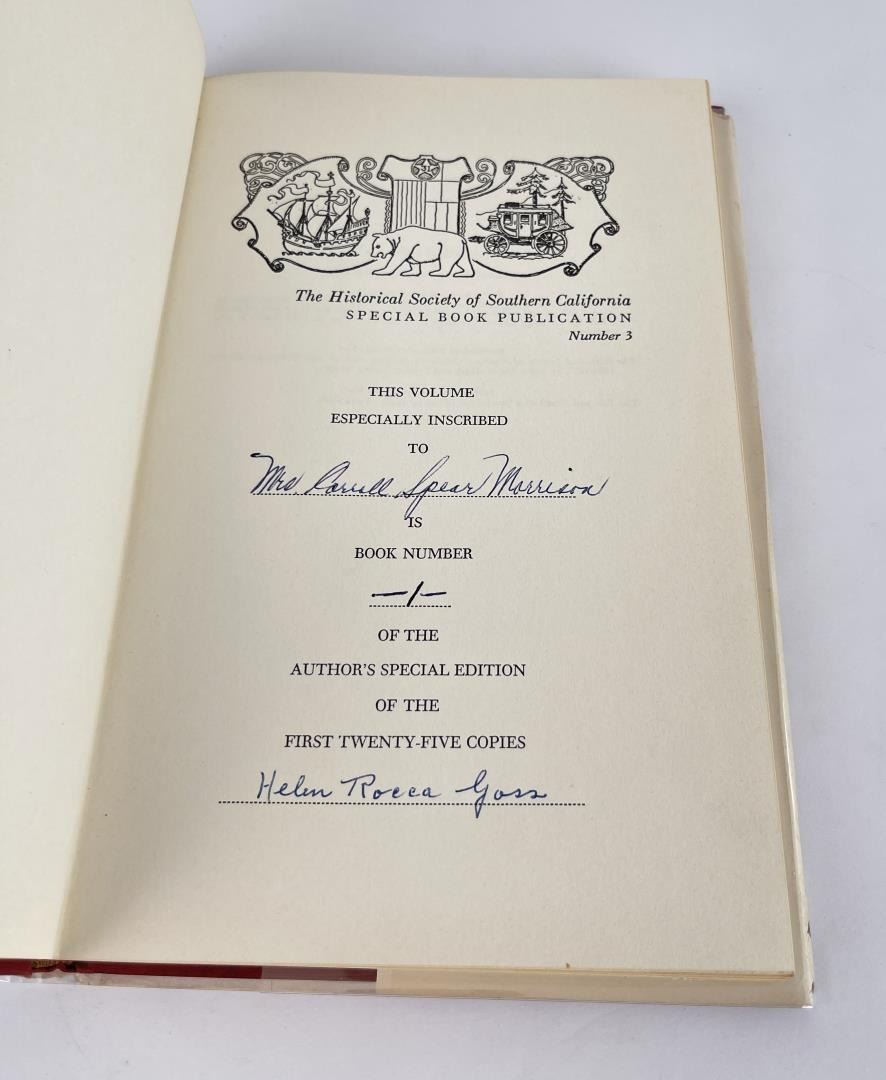 The Historical Society of Southern California
SPECIAL BOOK PUBLICATION
Number 3
THIS VOLUME
ESPECIALLY INSCRIBED
TO
Mrs. Carroll Spear Morrison
IS
BOOK NUMBER
—1—
OF THE
AUTHOR'S SPECIAL EDITION
OF THE
FIRST TWENTY-FIVE COPIES
Helen Rocca Goss